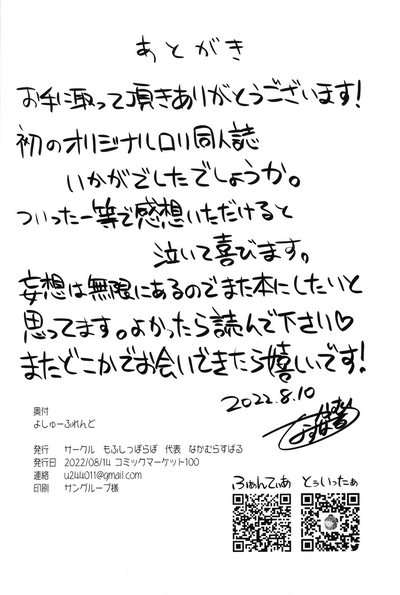 あとがき
お手に取って頂きありがとうございます!
初のオリジナルロリ同人誌
いかがでしたでしょうか。
ついったー等で感想いただけると
泣いて喜びます。
妄想は無限にあるのでまた本にしたいと
思ってます。よかったら読んで下さい♡
またどこかでお会いできたら嬉しいです!
2022.8.10
奥付
よしゅーふれんど
発行 サークル もふしっぽらぼ 代表 なかむらすばる
発行日 2022/08/14 コミックマーケット100
連絡 u2144011@gmail.com
印刷 サングループ様
ふぁんてぃあ とぅいったぁ